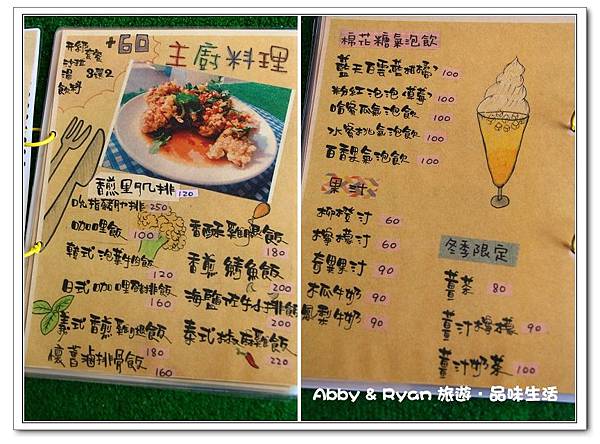 升級套餐 +60
沙拉
湯 3選2
飲料
主廚料理
香煎里肌排 120
吮指豬肋排 250
咖哩飯 100
韓式泡菜牛肉飯 120
日式咖哩豬排飯 160
義式香煎雞腿飯 180
懷舊滷排骨飯 160
香酥雞腿飯 180
香煎鯖魚飯 200
海鹽牛小排飯 200
泰式椒麻雞飯 220
棉花糖氣泡飲
藍天白雲(藍柑橘) 100
粉紅泡泡(草莓) 100
哈蜜瓜氣泡飲 100
水蜜桃氣泡飲 100
百香果氣泡飲 100
果汁
柳橙汁 60
檸檬汁 60
奇異果汁 90
木瓜牛奶 90
鳳梨牛奶 90
冬季限定
薑茶 80
薑汁檸檬 90
薑汁奶茶 100
Abby & Ryan 旅遊・品味生活